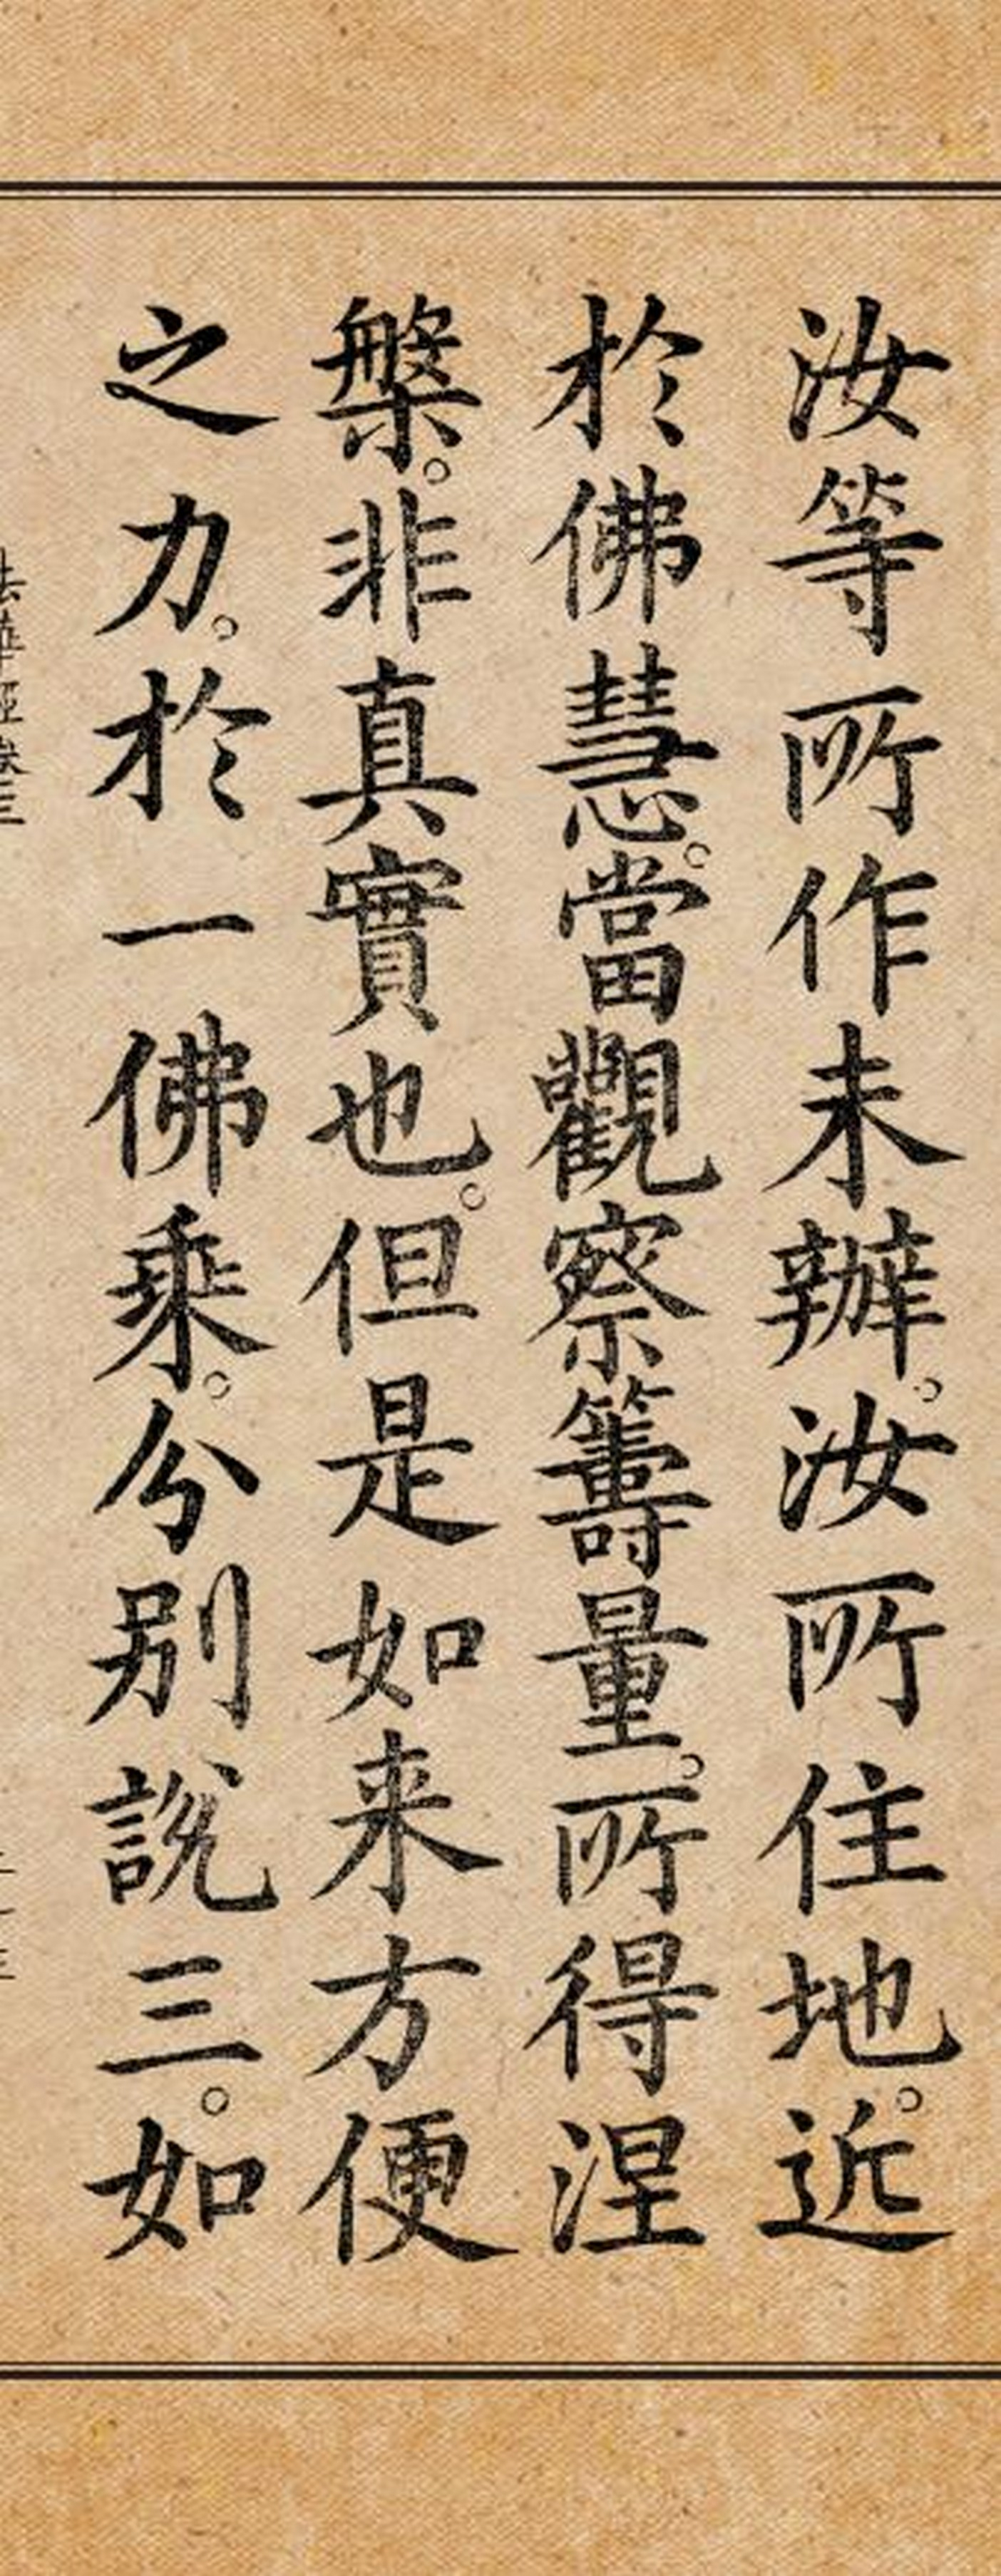 汝等所作未辦。汝所住地。近
於佛慧。當觀察籌量。所得涅
槃。非真實也。但是如来方便
之力。於一佛乘。分別說三。如
法華經卷三